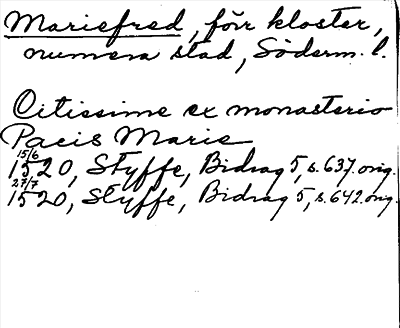 Mariefred, förr kloster,
numera stad, Söderm. l.
Citissime ex monasterio
Pacis Marie
15/6 1520, Styffe, Bidrag 5, s. 637. orig.
27/7 1520, Styffe, Bidrag 5, s. 642. orig.